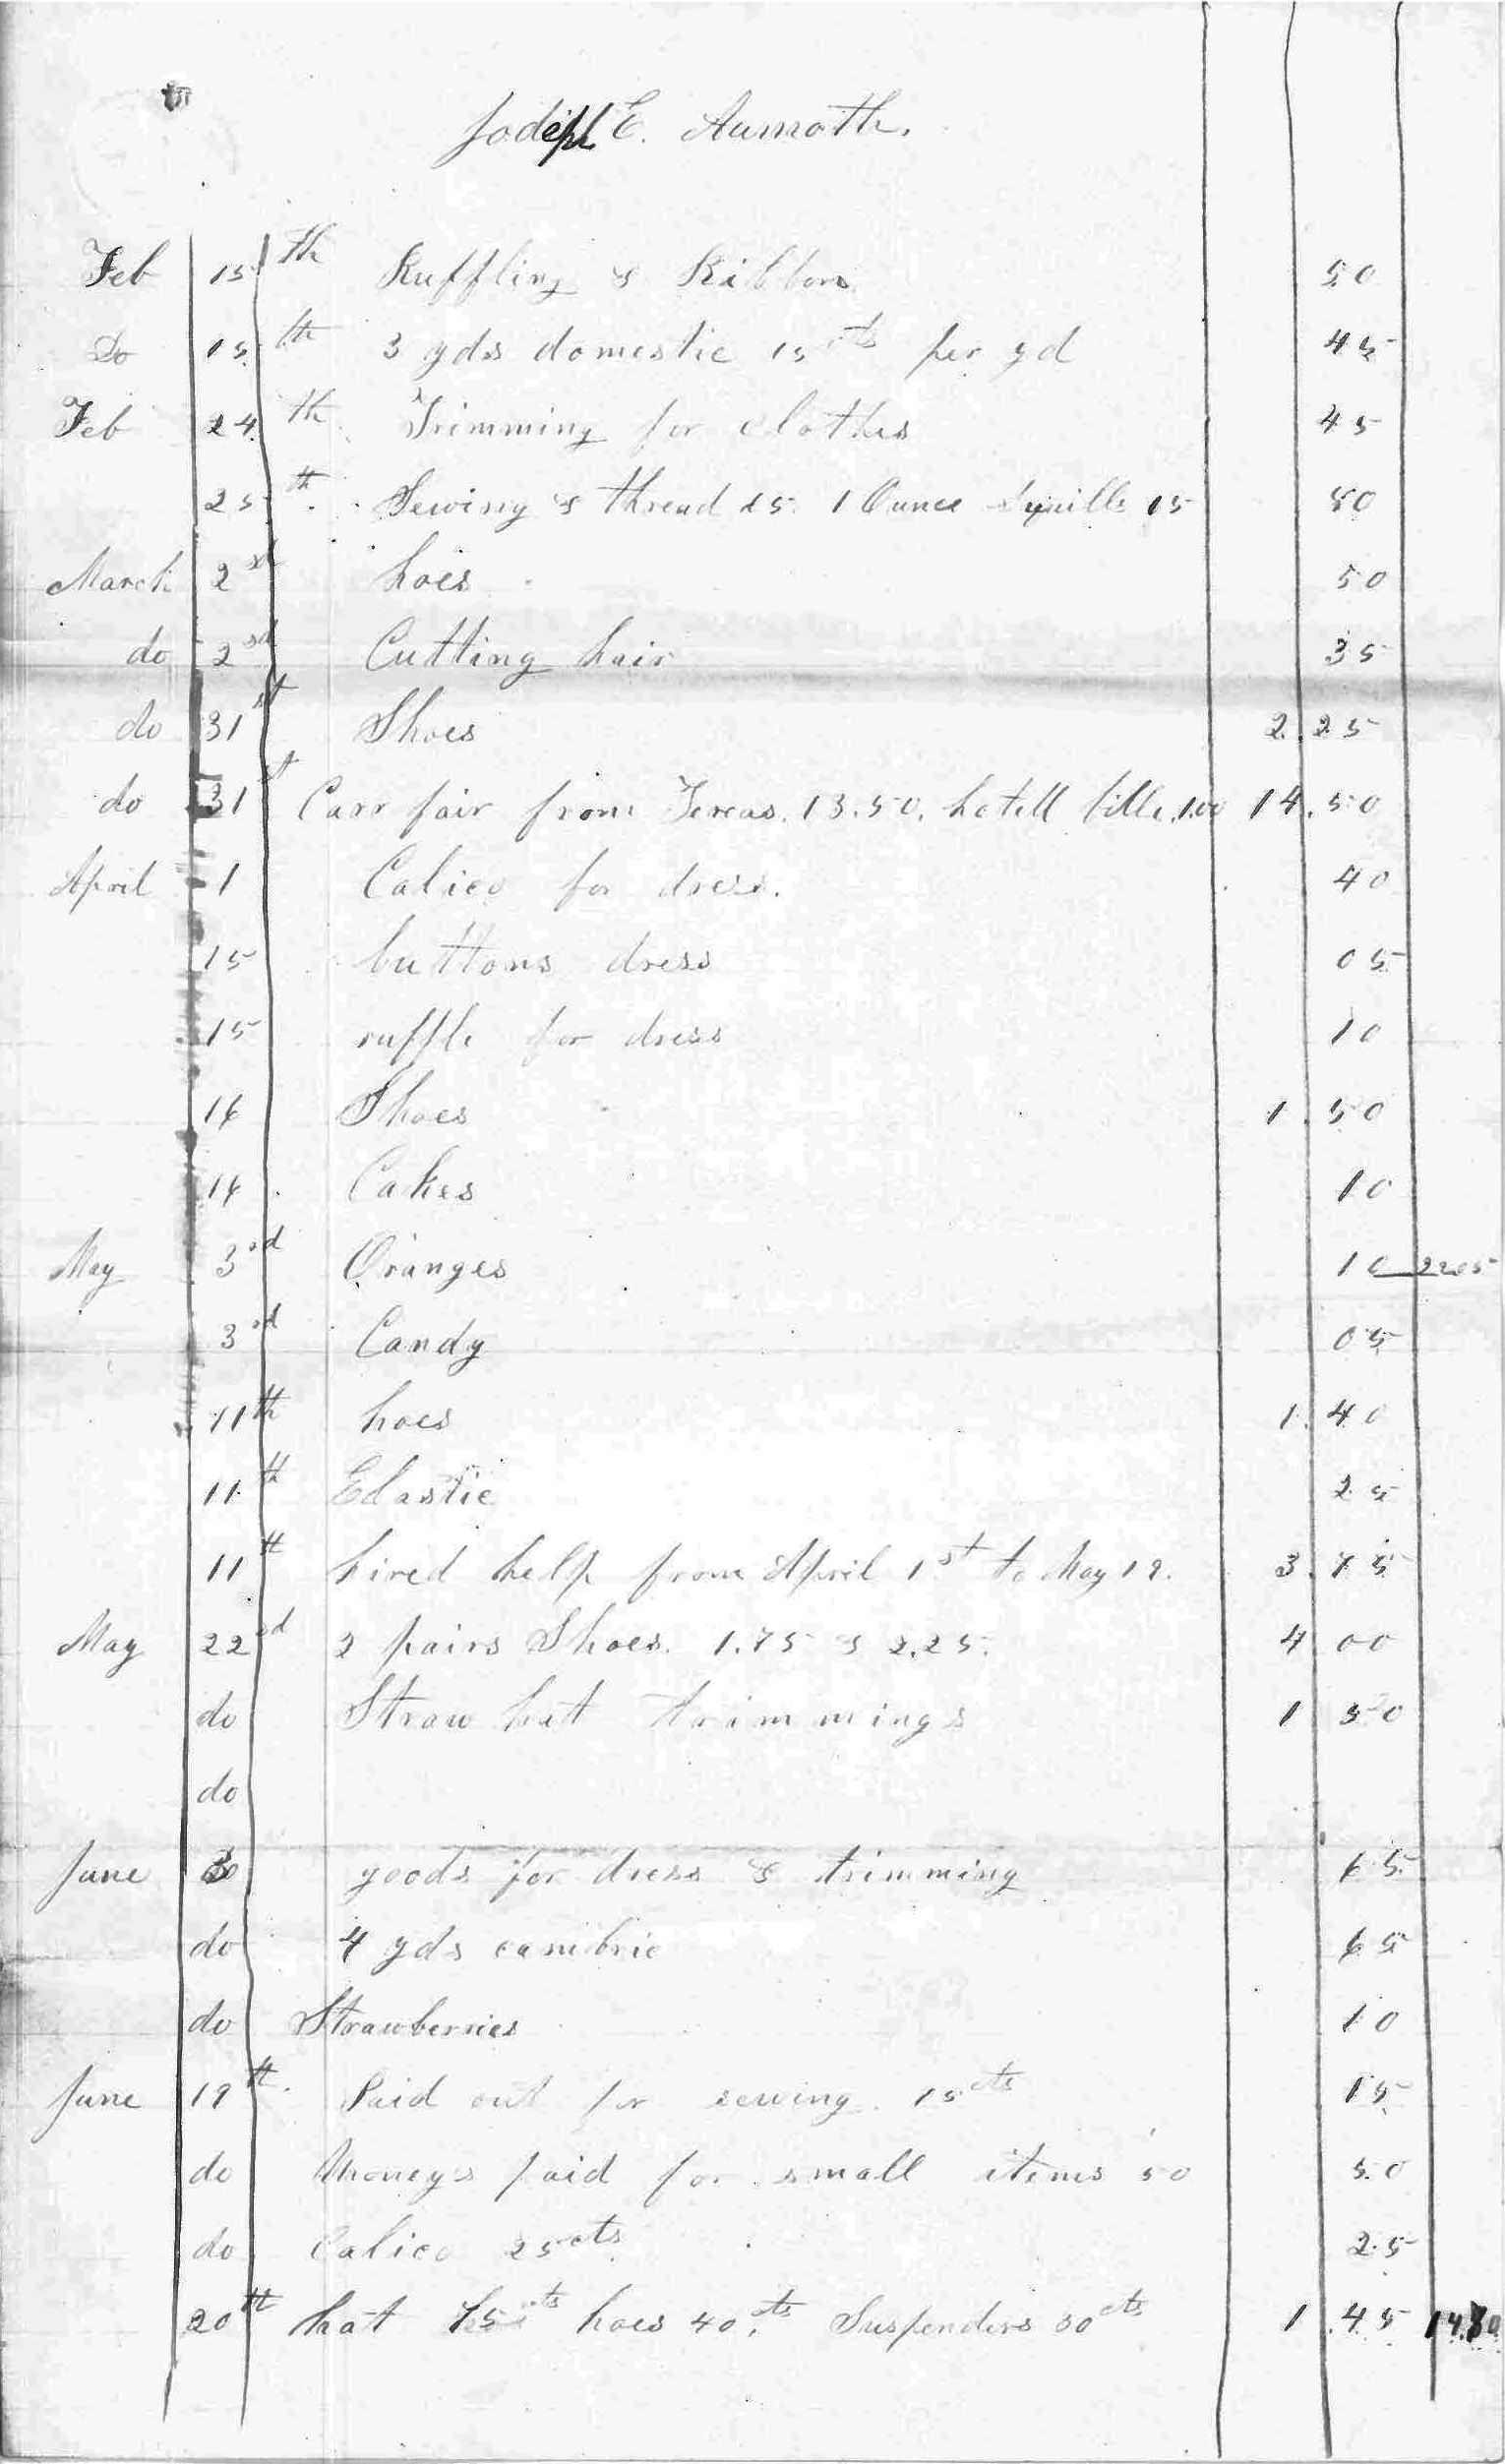 Joseph E. Aumoth.
Feb 15th Ruffling & Ribbon 50
Do 15th 3 yds domestic 15cts per yd 45
Feb 24th Trimming for clothes 45
25th Sewing & thread 1 Ounce 15
March 2nd hoes 50
do 2nd Cutting hair 35
do 31st Shoes 2.25
do 31st Carr fair from Texas. 13.50. hotell bille 1.00 14.50
April 1 Calico for dress. 40
15 buttons dress 05
15 ruffle for dress 10
16 Shoes 1.50
16 Cakes 10
May 3rd Oranges 10 22.05
3rd Candy 05
11th hoes 1.40
11th Elastic 25
11th hired help from April 1st to May 19. 3.75
May 22nd 2 pairs Shoes. 1.75 & 2.25. 4 00
do Straw hat trimmings 1 50
do
June goods for dress & trimming 65
do 4 yds cambric 65
do Strawberries 10
June 19th. Paid out for sewing. 15cts 15
do Moneys paid for small items 50 50
do Calico 25cts 25
20th hat 75cts hoes 40cts. Suspenders 30cts 1.45